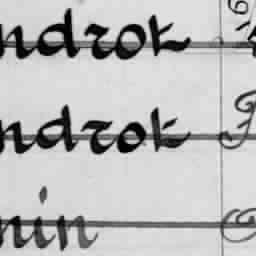 ndrok
ndrok
nin